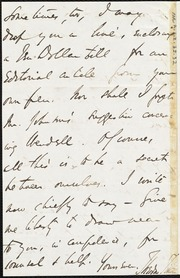 Sometimes, too, I may
drop you a line, enclosing
a Ten Dollar bill for an
Editorial article from your
own pen. Nor shall I forget
the John
suggestion concern-
ing Wendell. Of course,
all this is to be a secret
between ourselves. I write
now chiefly to say — Give
me liberty to draw near
to you, in confidence, for
counsel & help. Yours ever,